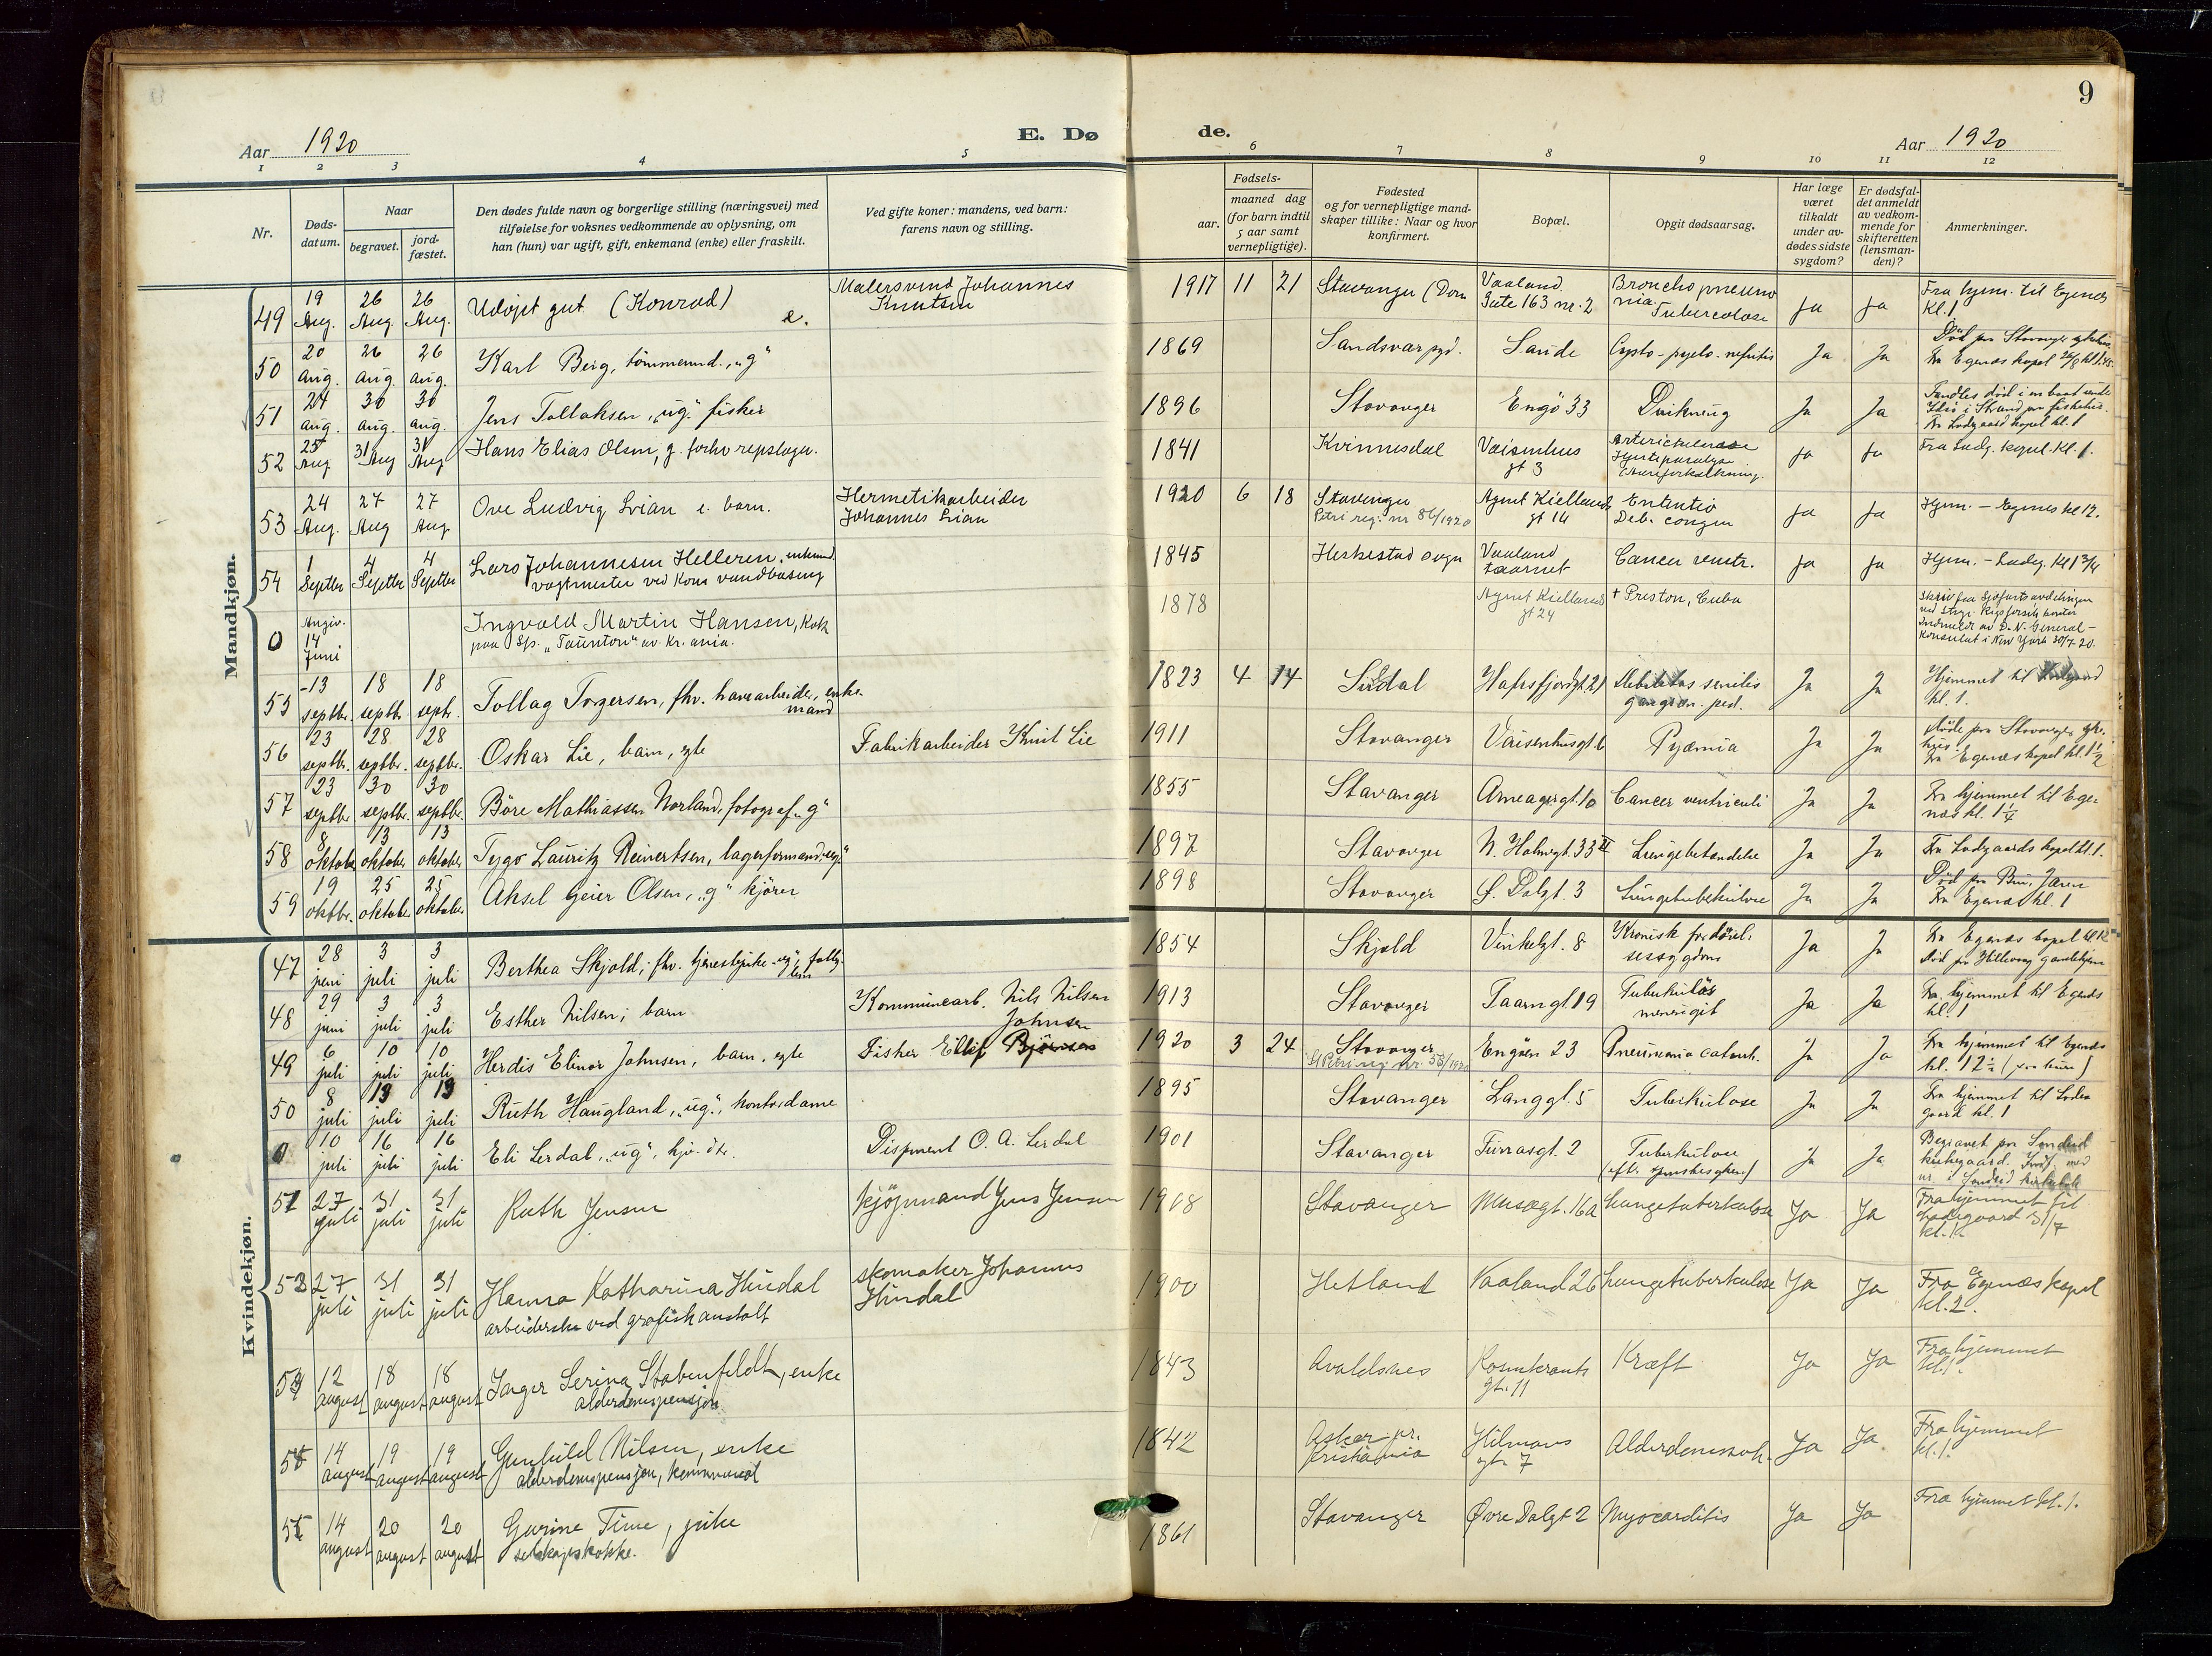 9
Aar 1920
E. Dø
de.
Aar 1920
1 2 3 4 5 6 7 8 9 10 11 12
Nr.
Døds-
datum.
Naar
begravet.
jord-
fæstet.
Den dødes fulde navn og borgerlige stilling (næringsvei) med
tilføielse for voksnes vedkommende av oplysning, om
han (hun) var ugift, gift, enkemand (enke) eller fraskilt.
Ved gifte koner: mandens, ved barn:
farens navn og stilling.
Fødsels-
aar.
maaned dag
(for barn indtil
5 aar samt
vernepligtige).
Fødested
og for vernepligtige mand-
skaper tillike: Naar og hvor
konfirmert.
Bopæl.
Opgit dødsaarsag.
Har læge
været
tilkaldt
under av-
dødes sidste
sygdom?
Er dødsfal-
det anmeldt
av vedkom-
mende for
skifteretten
(lensman-
den)?
Anmerkninger.
Mandkjøn.
49 19 Aug. 26 Aug. 26 Aug. Udøpt gut (Konrad) e. Malersvend Johannes Knutsen 1917 11 21 Stavanger (Dom Vaaland Gate 163 nr. 2 Bronchopneumonia. Tuberculose Ja Ja Fra hjem. til Egenes Kl. 1
50 20 aug. 26 aug. 26 aug. Karl Berg, tømmermd., "g" 1869 Sandsvær pgd. Sande Cysto-pyelo-nefritis Ja Ja Død paa Stavanger sykehus Fra Egenæs kapel 26/8 kl.
51 24 aug. 30 aug. 30 aug. Jens Tollaksen, "ug." fisker 1896 Stavanger Engø 33 Drukning Ja Ja Fandtes død i en baat i Strand paa fisketur. Fra Lodgaard kapel kl. 1
52 25 Aug. 31 Aug 31 Aug Hans Elias Olsen, g. forhv repslager. 1841 Kvinnesdal Vaisenhus gt 3 Ja Ja Fra Ladg. kapel. Kl. 1.
53 24 Aug. 27 Aug 27 Aug. Ove Ludvig Svian e. barn. Hermetikarbeider Johannes Svian 1920 6 18 Stavanger Petri reg. nr 86/1920 Agnet Kiellands gt 14 Deb. congen Ja Ja Hjem. - Egenes kl 12.
54 1 Septbr 4 Septbr 4 Septbr Lars Johannesen Helleren. enkemd. vagtmester ved Kom vandbasseng 1845 Heskestad sogn Vaaland taarnet Cancer ventr. Ja Ja Hjem. - Ladeg. Kl 1 3/4
0 Angiv. 14 Juni Ingvald Martin Hansen, Kok paa S/s. "Taunton" av Kr. ania. 1878 Kiellands gt 24 + Preston, Cuba Skriv fra Sjøfartsavdelingen ved Stvgr. kontor Indmeldt av D. N. General-Konsulat i New York 30/7-20.
55 -13 septbr. 18 septbr. 18 septr. Tollag Torgersen, fhv. havearbeider, enke-mand 1823 4 14 Sirdal Hafrsfjordgt. 21 Debilitas senilis gangræn. ped. Ja Ja Hjemmet til kl. 1.
56 23 septbr. 28 septbr. 28 septbr. Oskar Lie, barn, egte Fabrikarbeider Knut Lie 1911 Stavanger Vaisenhusgt. 6 Pyæmia Ja Ja Døde paa Stavanger syke-hus Fra Egenæs kapel kl. 1 1/2
57 23 septbr. 30 septbr. 30 septbr. Børe Mathiassen Norland, fotograf "g" 1855 Stavanger Arneagergt. 10 Cancer ventriculi Ja Ja Fra hjemmet til Ege-næs kl. 1 1/4
58 8 oktober 13 oktober 13 oktober Tygo Lauritz Reinertsen, lagerformand "ug" 1897 Stavanger N. Holmegt. 33 II Lungebetændelse Ja Ja Fra Lodgaards kapel kl. 1.
59 19 oktbr. 25 oktober 25 oktober Aksel Geier Olsen, "g" kjører 1898 Stavanger Ø. Dalgt. 3 Lungetuberkulose Ja Ja Død paa Bru, Jæren Fra Egenæs kl. 1
Kvindekjøn.
47 28 juni 3 juli 3 juli Bertha Skjold, fhv. tjenestepike "ug", fattig-lem 1854 Skjold Vinkelgt. 8 Kronisk fordøiel-sessygdom Ja Ja Fra Egenæs kapel Død paa Hillevaag gamlehjem
48 29 juni 3 juli 3 juli Esther Nilsen; barn Kommunearb. Nils Nilsen 1913 Stavanger Taarngt 19 Tuberkuløs meningit Ja Ja Fra hjemmet til Egenæs kl. 1
49 6 juli 10 juli 10 juli Herdis Elinor Johnsen, barn, egte Fisker Ellif Johnsen 1920 3 24 Stavanger St Petri reg nr. 53/1920 Engøen 23 Pneumonia catarrh. Ja Ja Fra hjemmet til Egenæs kl. 12 1/2
50 8 juli 13 juli 13 juli Ruth Haugland, "ug", kontordame 1895 Stavanger Langgt. 5 Tuberkulose Ja Ja Fra hjemmet til Lade-gaard kl. 1
0 10 juli 16 juli 16 juli Eli Lerdal, "ug", hjv. dtr. Disponent O. A. Lerdal 1901 Stavanger Furrasgt. 2 Tuberkulose Ja Ja Begravet paa Søndeled kirkegaard. Indf. med nr. i Søndeled kirkebok
51 27 juli 31 juli 31 juli Ruth Jensen kjøpmand Jens Jensen 1908 Stavanger Musægt. 16a Lungetuberkulose Ja Ja Fra hjemmet til Ladegaard 31/7 kl. 12
53 27 juli 31 juli 31 juli Hanna Katharina Hindal arbeiderske ved grafisk anstalt skomaker Johannes Hindal 1900 Hetland Vaaland 26 Lungetuberkulose Ja Ja Fra Egenæs kapel kl. 2.
54 12 august 18 august 18 august Inger Serina Stabenfeldt, enke alderdomspensjon 1843 Avaldsnes Rosenkrants gt. 11 Kræft Ja Ja Fra hjemmet kl. 1.
14 august 19 august 19 august Gunhild Nilsen, enke alderdomspensjon, kommunal 1842 Asker pr. Kristiania Hilmars gt. 7 Alderdomssvak. Ja Ja. Fra hjemmet kl. 1.
14 august 20 august 20 august Gurine Time, pike selskapskokke. 1861 Stavanger Øvre Dalgt 2 Myocarditis Ja Ja Fra hjemmet kl. 1.